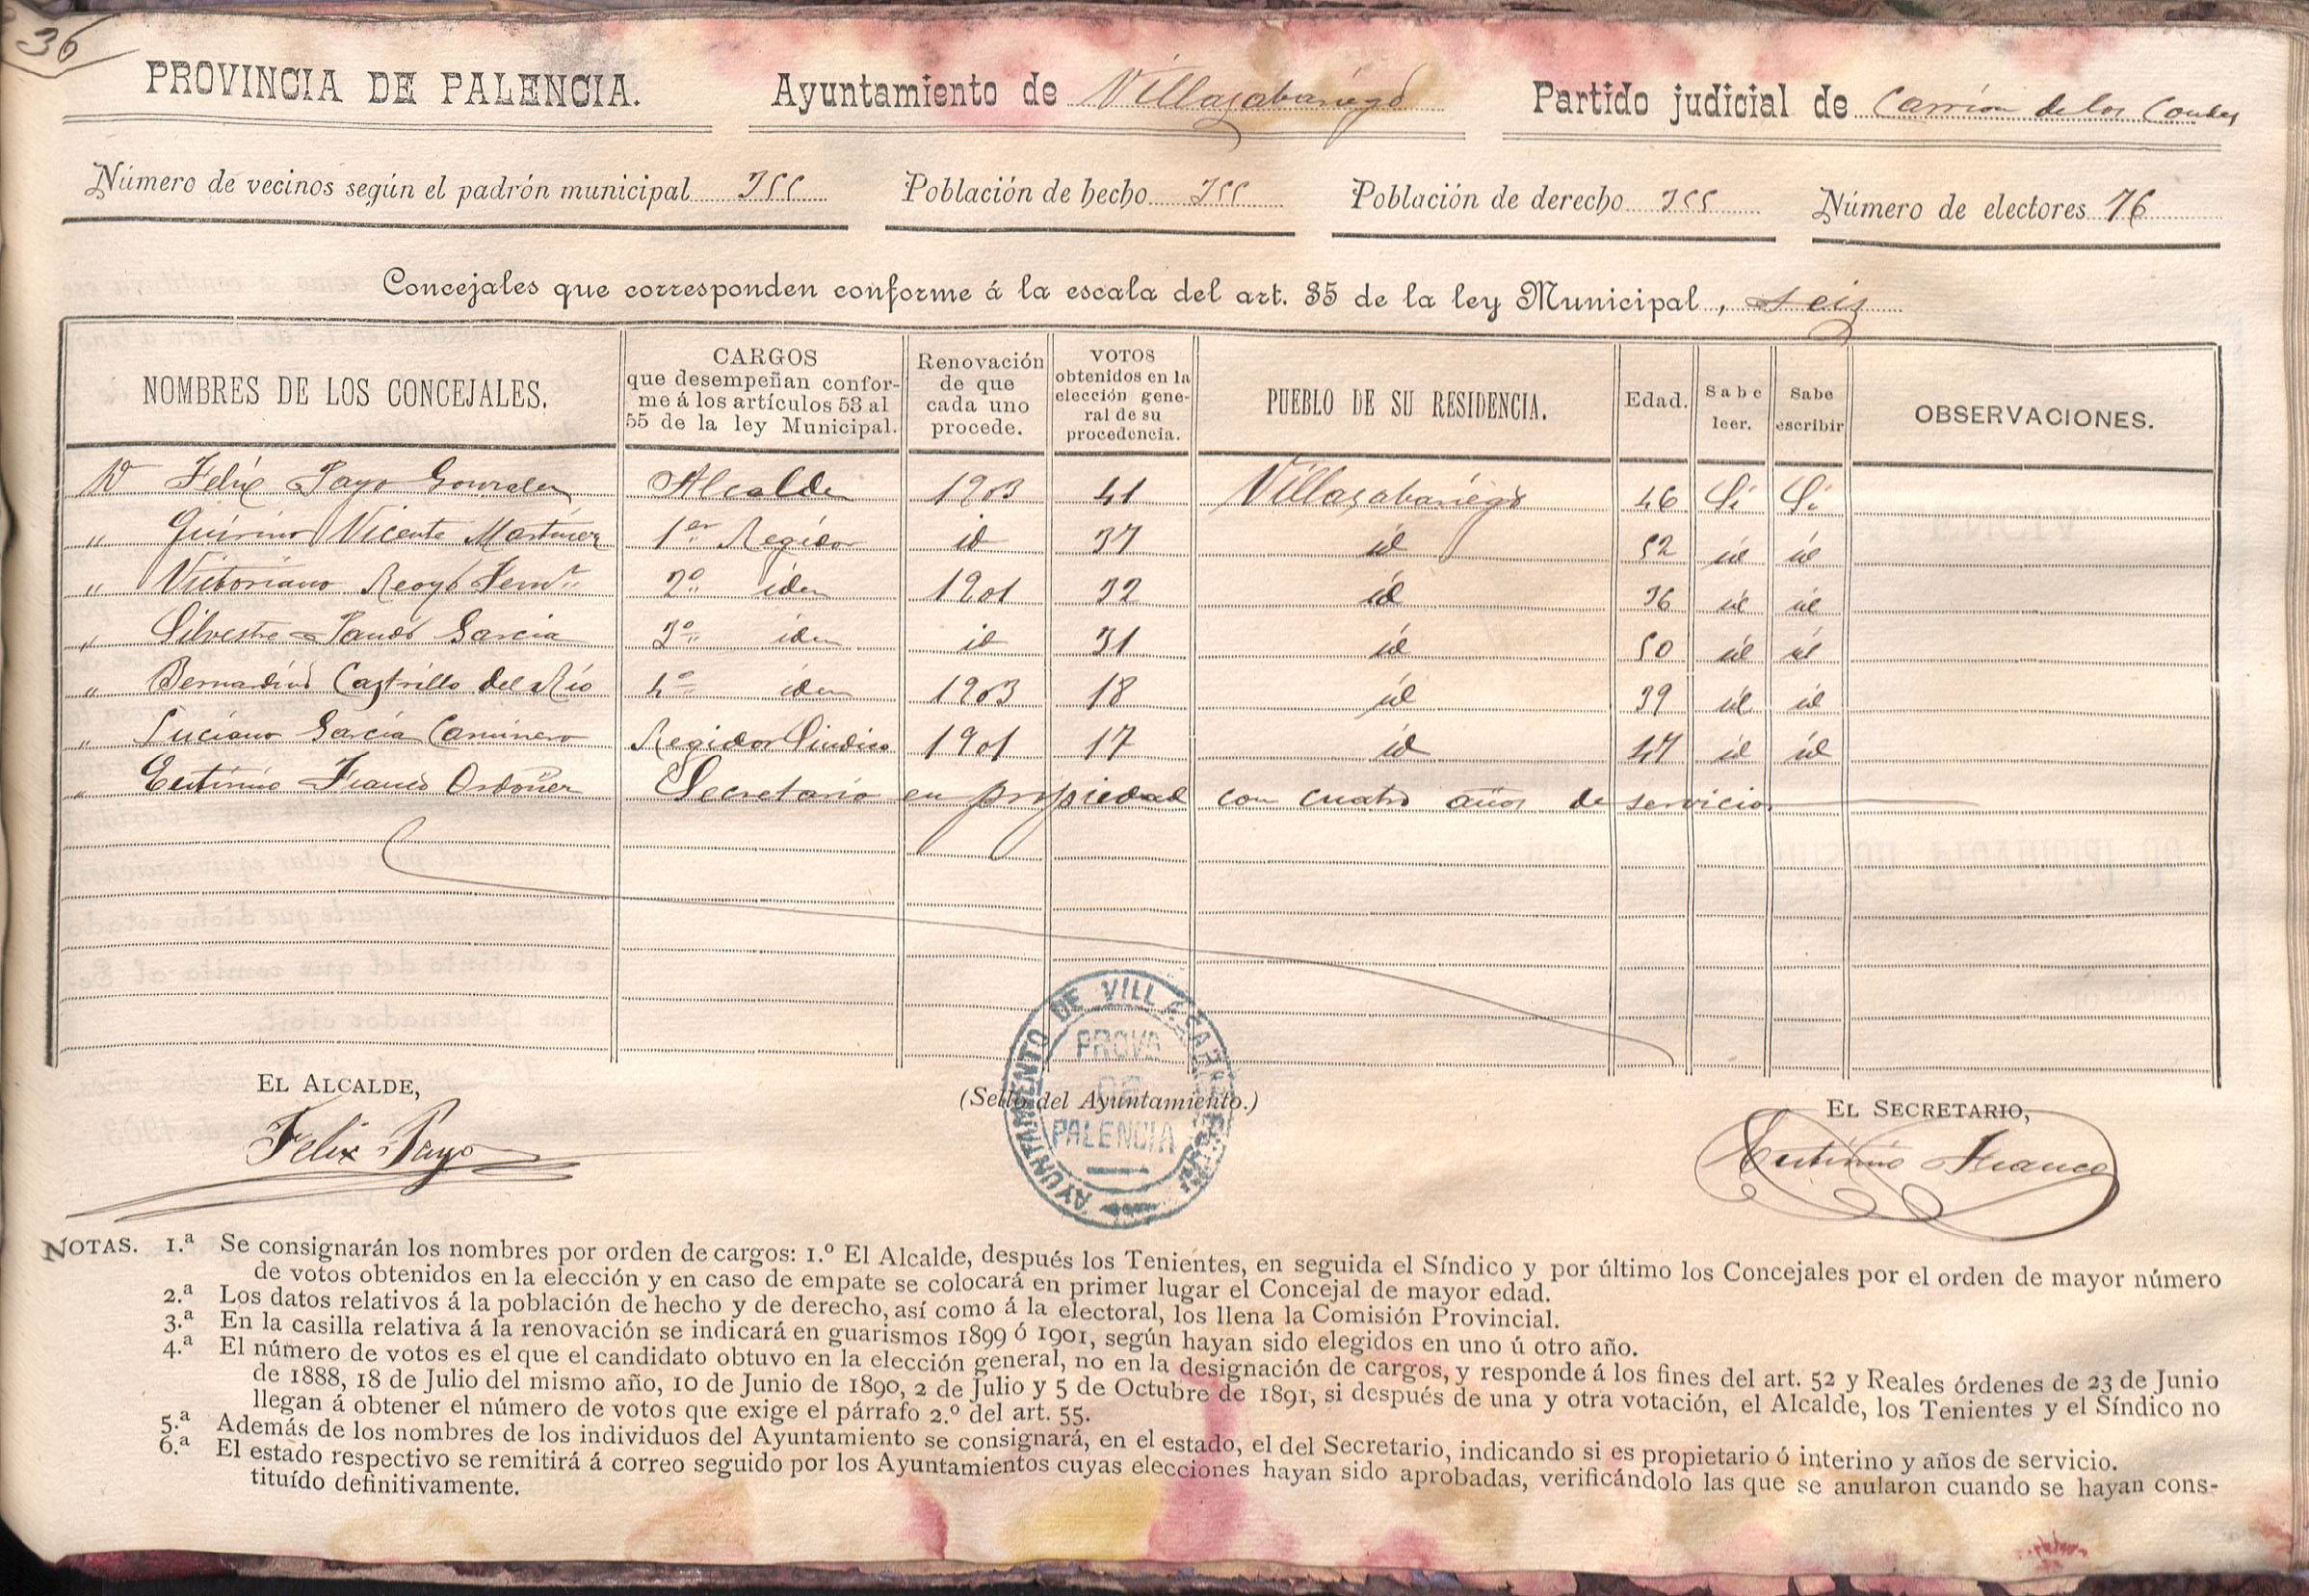 36
PROVINCIA DE PALENCIA. Ayuntamiento de Villasabariego Partido judicial de Carrion de los Condes
Número de vecinos según el padrón municipal 355 Población de hecho 355 Población de derecho 355 Número de electores 76
Concejales que corresponden conforme á la escala del art. 35 de la ley Municipal, seis
NOMBRES DE LOS CONCEJALES. CARGOS que desempeñan conforme á los artículos 53 al 55 de la ley Municipal. Renovación de que cada uno procede. VOTOS obtenidos en la elección general de su procedencia. PUEBLO DE SU RESIDENCIA. Edad. Sabe leer. Sabe escribir OBSERVACIONES.
D Felix Payo Gonzalez Alcalde 1903 41 Villasabariego 46 Si Si
" Quirino Vicente Martinez 1er Regidor id 37 id 52 id id
" Victoriano Reoyo 2º idem 1901 32 id 36 id id
" Silvestre Garcia 3º idem id 31 id 50 id id
" Bernardino Castrillo del Rio 4º idem 1903 18 id 39 id id
" Luciano Garcia Caminero Regidor Sindico 1901 17 id 47 id id
" Eutimio Franco Ordoñez Secretario en propiedad con cuatro años de servicio
EL ALCALDE, (Sello del Ayuntamiento.) EL SECRETARIO,
Felix Payo AYUNTAMIENTO DE PROVA DE PALENCIA Eutimio Franco
NOTAS. 1.ª Se consignarán los nombres por orden de cargos: 1.º El Alcalde, después los Tenientes, en seguida el Síndico y por último los Concejales por el orden de mayor número
de votos obtenidos en la elección y en caso de empate se colocará en primer lugar el Concejal de mayor edad.
2.ª Los datos relativos á la población de hecho y de derecho, así como á la electoral, los llena la Comisión Provincial.
3.ª En la casilla relativa á la renovación se indicará en guarismos 1899 ó 1901, según hayan sido elegidos en uno ú otro año.
4.ª El número de votos es el que el candidato obtuvo en la elección general, no en la designación de cargos, y responde á los fines del art. 52 y Reales órdenes de 23 de Junio
de 1888, 18 de Julio del mismo año, 10 de Junio de 1890, 2 de Julio y 5 de Octubre de 1891, si después de una y otra votación, el Alcalde, los Tenientes y el Síndico no
llegan á obtener el número de votos que exige el párrafo 2.º del art. 55.
5.ª Además de los nombres de los individuos del Ayuntamiento se consignará, en el estado, el del Secretario, indicando si es propietario ó interino y años de servicio.
6.ª El estado respectivo se remitirá á correo seguido por los Ayuntamientos cuyas elecciones hayan sido aprobadas, verificándolo las que se anularon cuando se hayan cons-
tituído definitivamente.